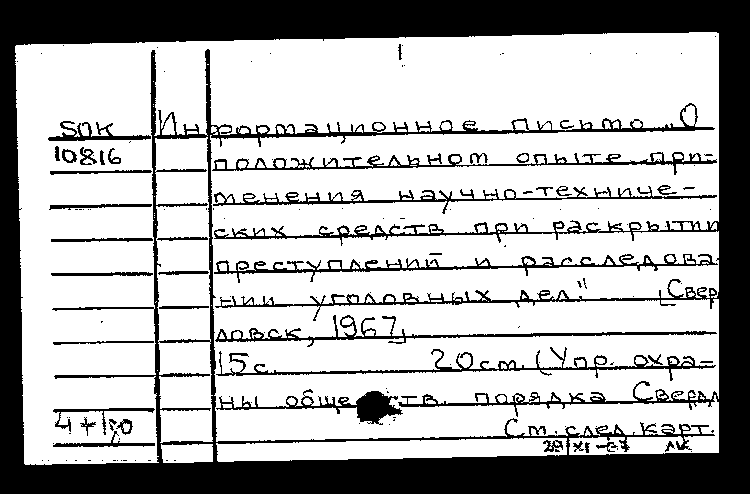 SПК Информационное письмо „О
10816 положительном опыте при-
менения научно-техниче-
ских средств при раскрытии
преступлений и расследова-
нии уголовных дел." [Сверд
ловск, 1967].
15с. 20см. (Упр. охра-
ны обществ. порядка Свердл
4+1до Ст. след. карт.
29/XI-67 ЛК